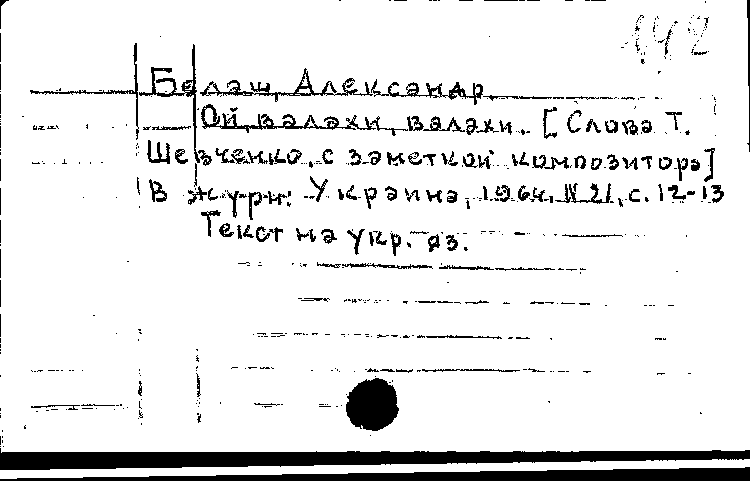 142
Белаш, Александр.
Ой, валахи, валахи. [Слова Т.
Шевченко, с заметкой композитора]
В журн: Украина, 1964, № 21, с. 12-13
Текст на укр. яз.